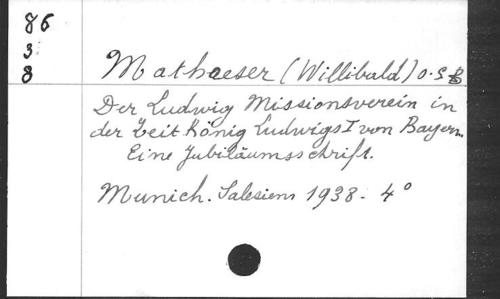 86
3
8
Mathaeser (Willibald) O.S.B
Der Ludwig Missionsverein in
der Zeit König Ludwigs I von Bayern.
Eine Jubiläumsschrift.
Munich. Salesiens 1938. 4°